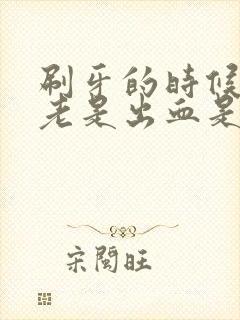 刷牙的时候
老是出血是
宋閔旺